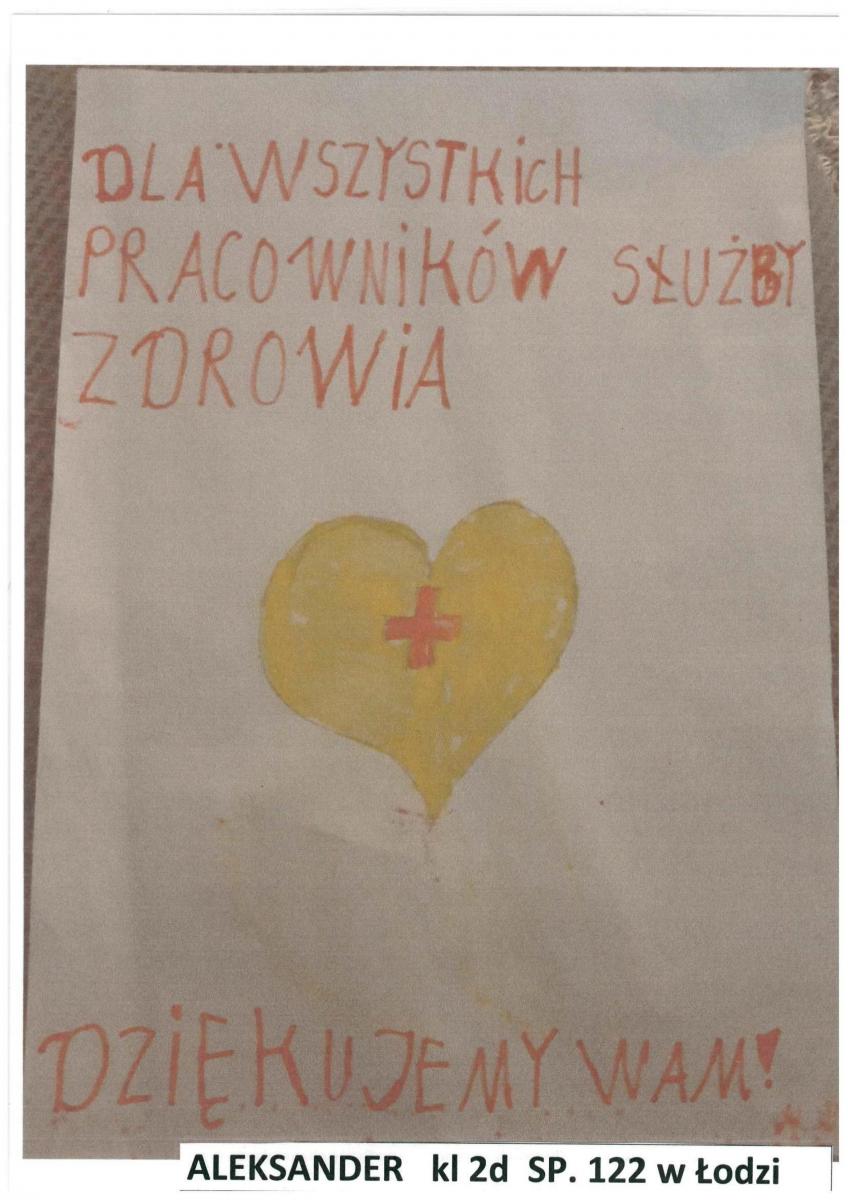 DLA WSZYSTKiCH
PRACOWNiKÓW SŁUŻBY
ZDROWiA
DZiĘKUJEMY WAM!
ALEKSANDER kl 2d SP. 122 w Łodzi